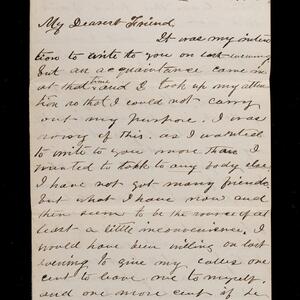 My Dearest Friend
It was my inten
tion to write to you on last evening
but an acquaintance came in
at that time and took up my atten
tion so that I could not carry
out my purpose. I was
sorry of this. as I wanted
to write to you more than I
wanted to talk to any body else
I have not got many friends
but what I have now and
then seem to be the source of at
least a little inconvenience. I
would have been willing on last
evening to give my caller one
cent to leave me to myself.
and one more cent if he